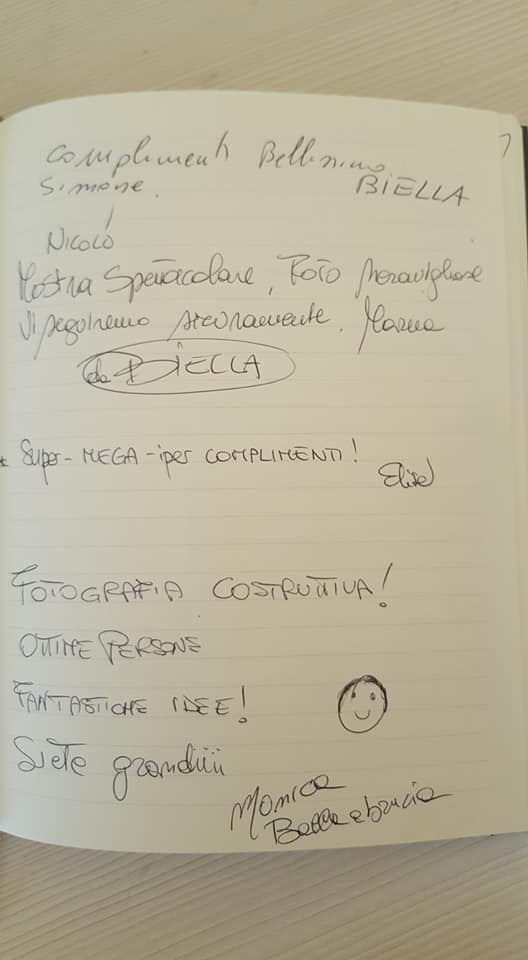 Complimenti Bellissimo
Simone. BIELLA
Nicolò
Mostra Spettacolare, Foto meravigliose
Vi seguiremo sicuramente. 
da BIELLA
Super-MEGA-iper COMPLIMENTI!
Elisa
FOTOGRAFIA COSTRUTTIVA!
OTTIME PERSONE
FANTASTICHE IDEE!
Siete grandiiii
Monica